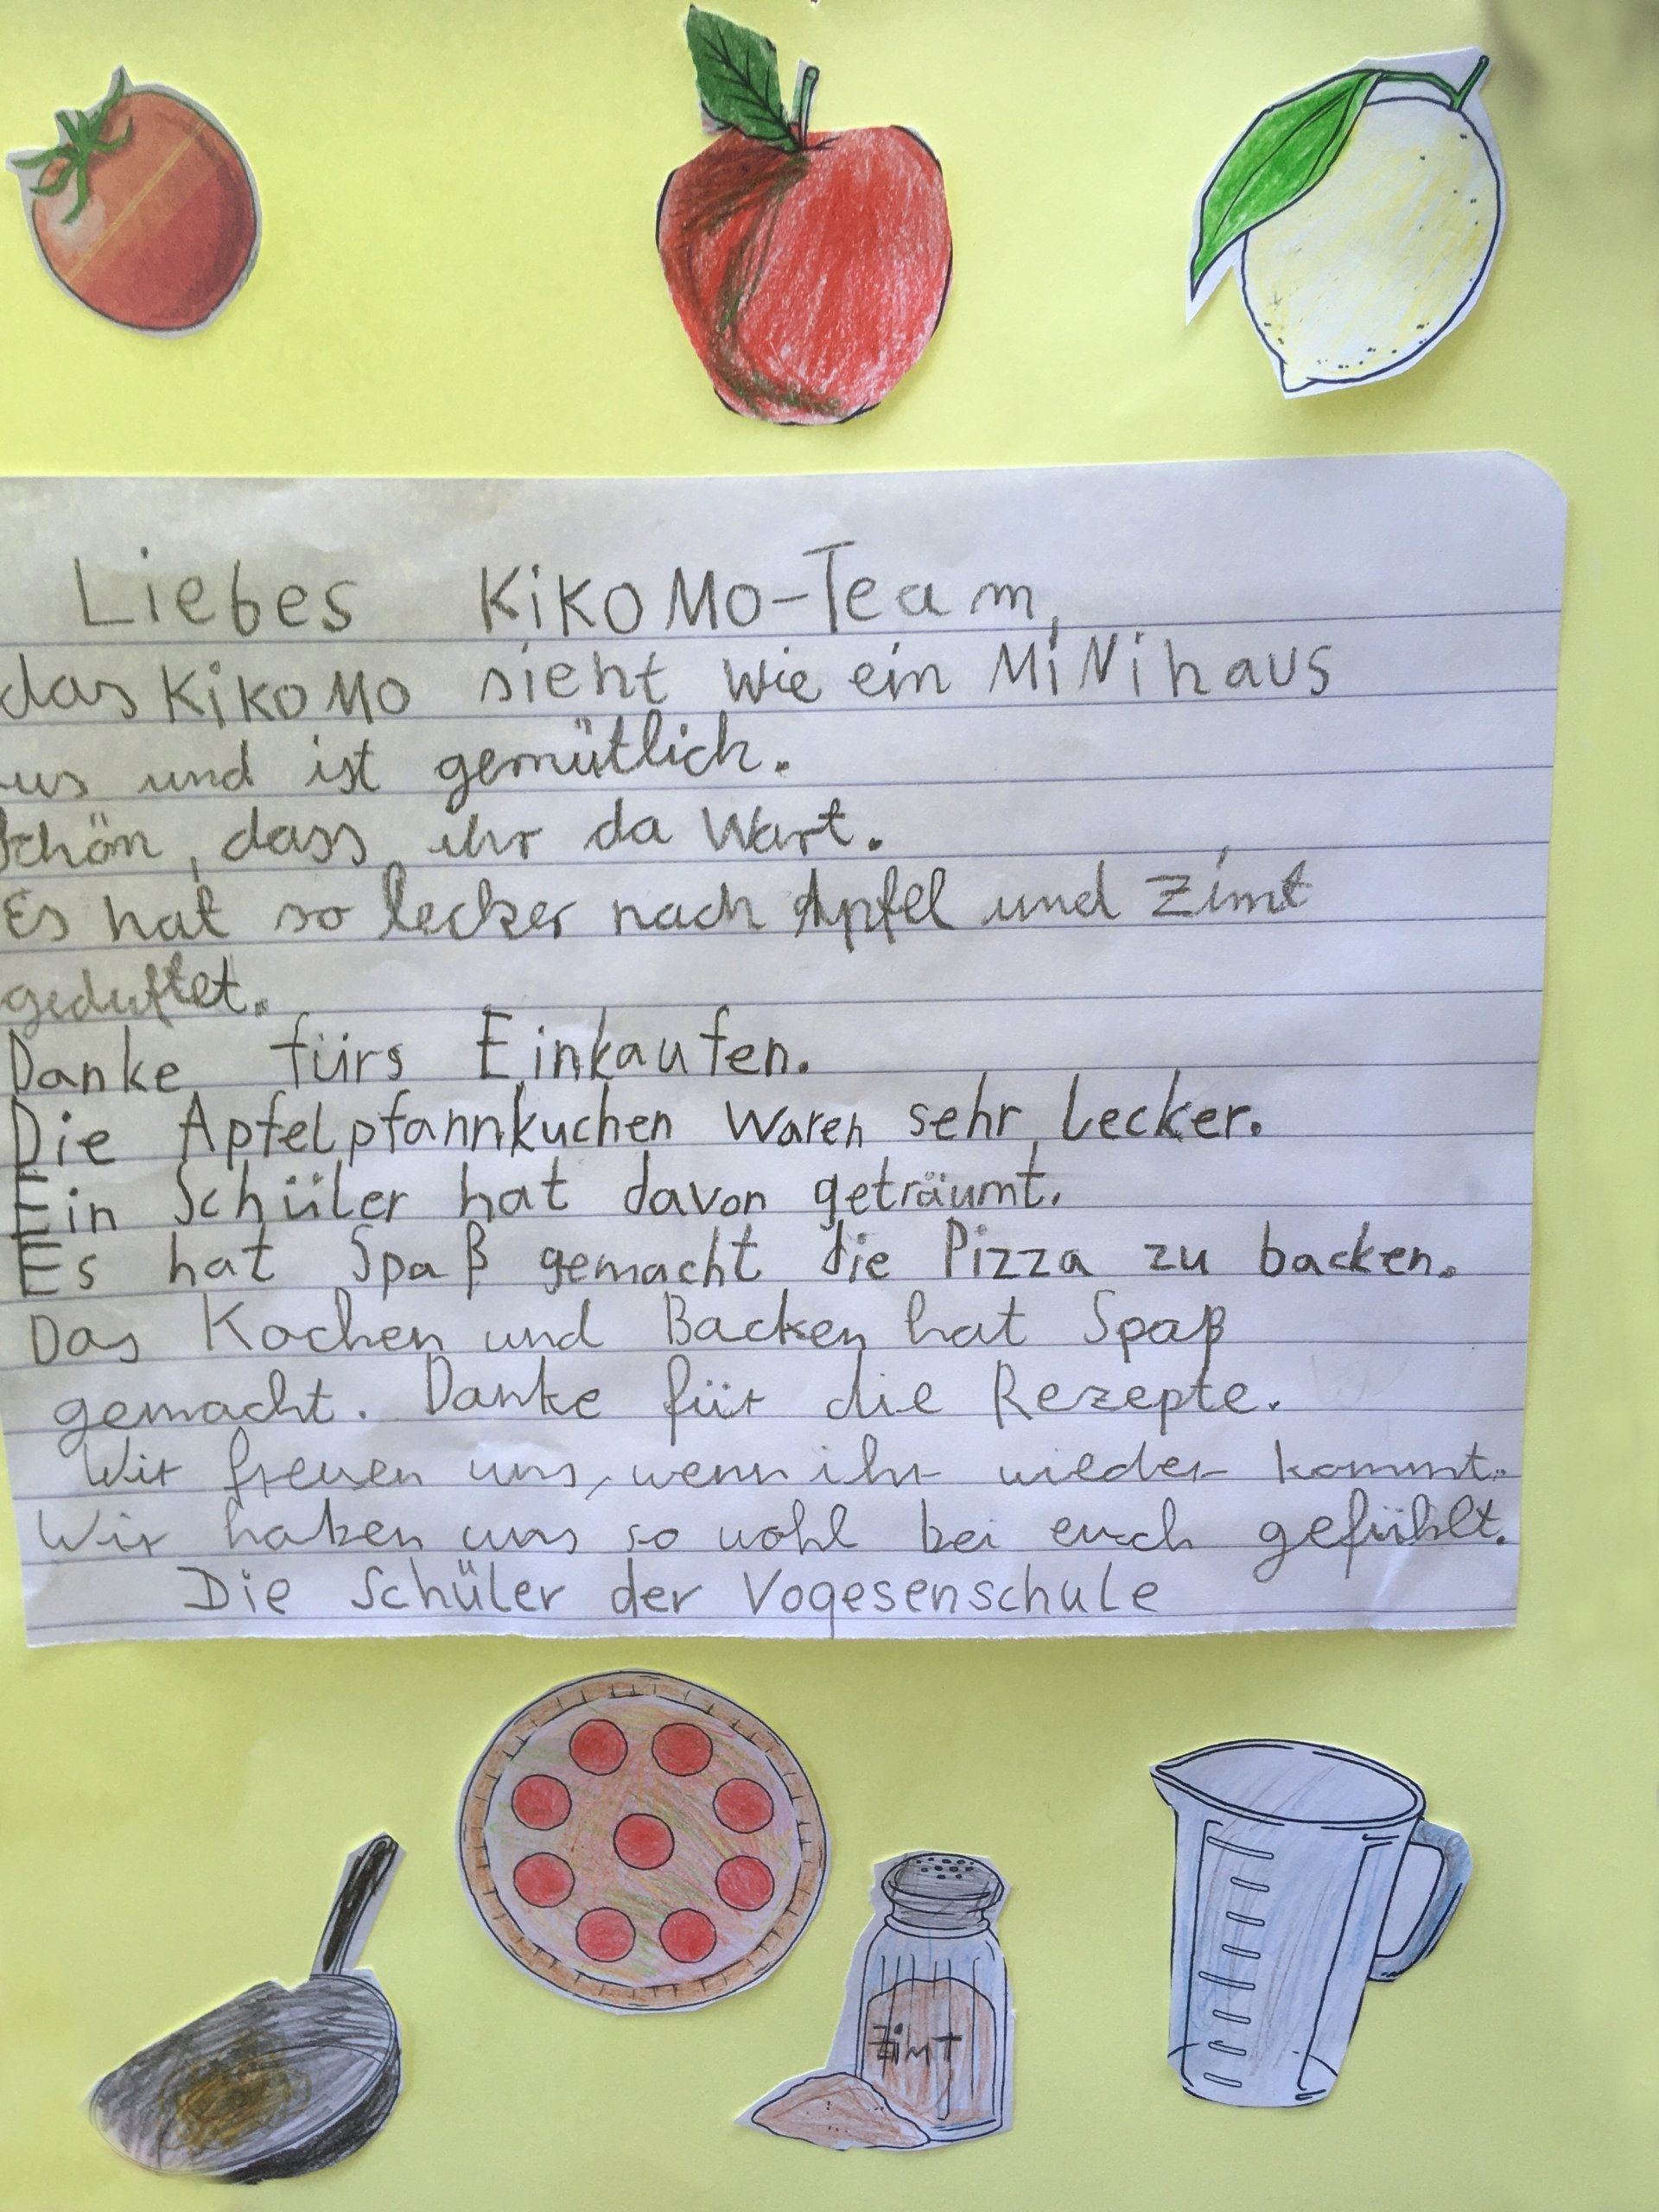 Liebes KiKoMo-Team,
das KiKoMo sieht wie ein MiNihaus
us und ist gemütlich.
schön, dass ihr da Wart.
Es hat so lecker nach Apfel und Zimt
geduftet.
Danke fürs Einkaufen.
Die Apfelpfannkuchen waren sehr lecker.
Ein Schüler hat davon geträumt.
Es hat Spaß gemacht die Pizza zu backen.
Das Kochen und Backen hat Spaß
gemacht. Danke für die Rezepte.
Wir freuen uns, wenn ihr wieder kommt.
Wir haben uns so wohl bei euch gefühlt.
Die Schüler der Vogesenschule
Zimt